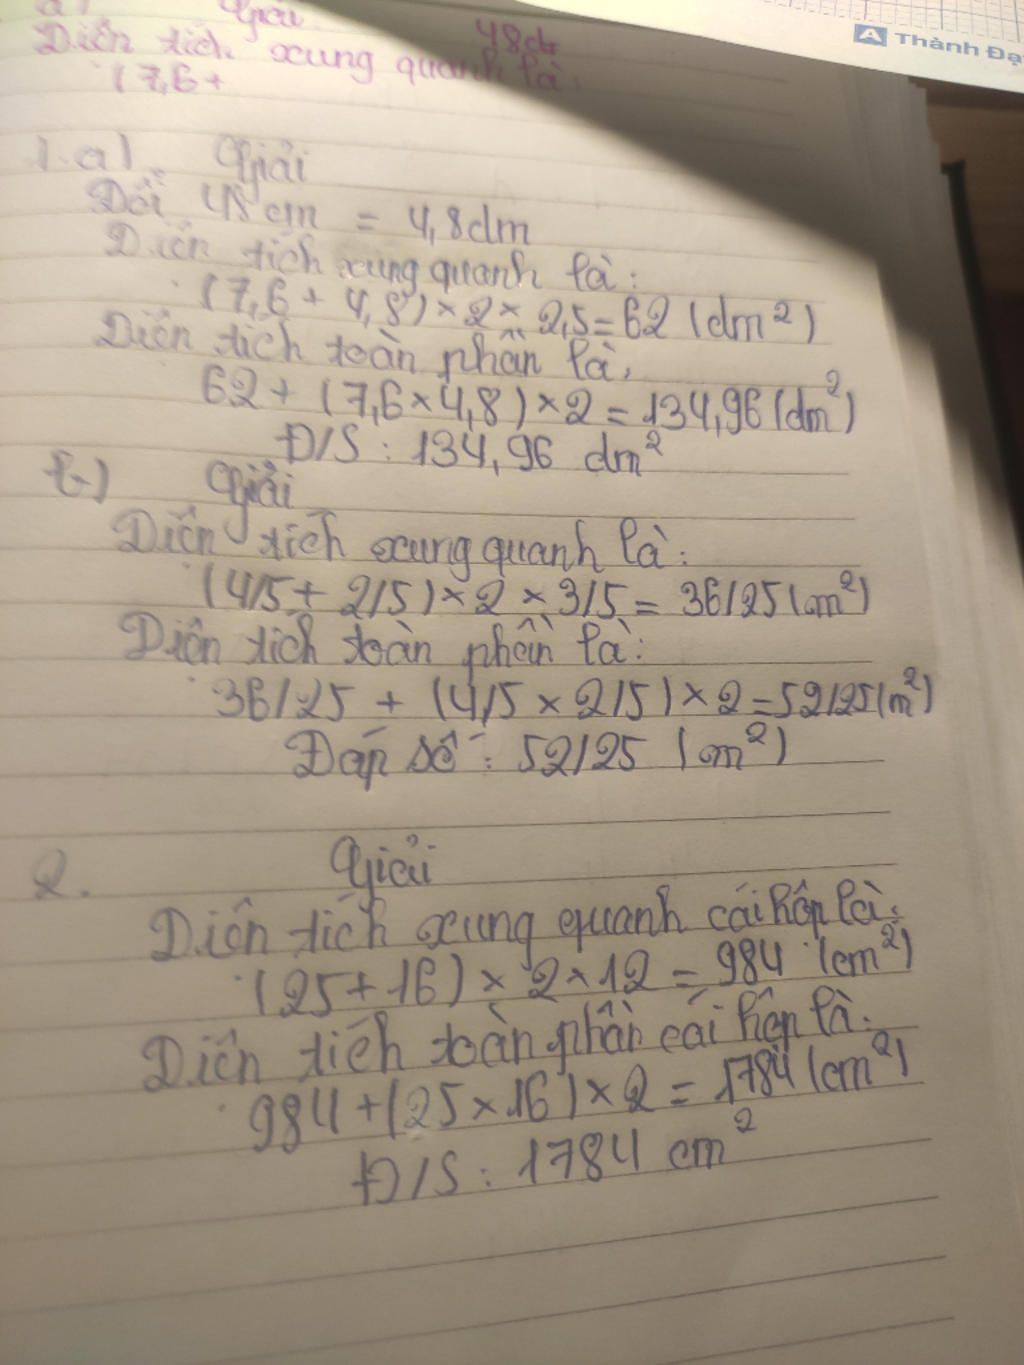 a)
Giải
48d
Diện tích xung quanh là:
(7,6+
Thành Đạ
1.a). Giải
Đổi 48 cm = 4,8dm
Diện tích xung quanh là:
(7,6 + 4,8) × 2 × 2,5 = 62 (dm²)
Diện tích toàn phần là,
62 + (7,6 × 4,8) × 2 = 134,96 (dm²)
Đ/S : 134,96 dm²
b) Giải
Diện tích xung quanh là:
(4/5 + 2/5) × 2 × 3/5 = 36/25 (m²)
Diện tích toàn phần là:
36/25 + (4/5 × 2/5) × 2 = 52/25 (m²)
Đáp số : 52/25 (m²)
2. Giải
Diện tích xung quanh cái hộp là:
(25 + 16) × 2 × 12 = 984 (cm²)
Diện tích toàn phần cái hộp là:
984 + (25 × 16) × 2 = 1784 (cm²)
Đ/S : 1784 cm²